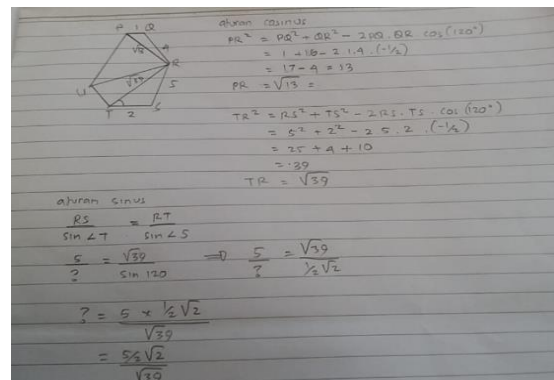 P 1 Q
4
R
√13
√39
5
U
T
2
S
aturan cosinus
PR² = PQ² + QR² - 2PQ.QR cos(120°)
= 1 + 16 - 2 1.4.(-1/2)
= 17 - 4 = 13
PR = √13 =
TR² = RS² + TS² - 2RS.TS.cos(120°)
= 5² + 2² - 2 5.2.(-1/2)
= 25 + 4 + 10
= 39
TR = √39
aturan sinus
RS/sin∠T = RT/sin∠S
5/? = √39/sin 120 ⇒ 5/? = √39/(1/2√2)
? = (5 * 1/2√2)/√39
= (5/2√2)/√39